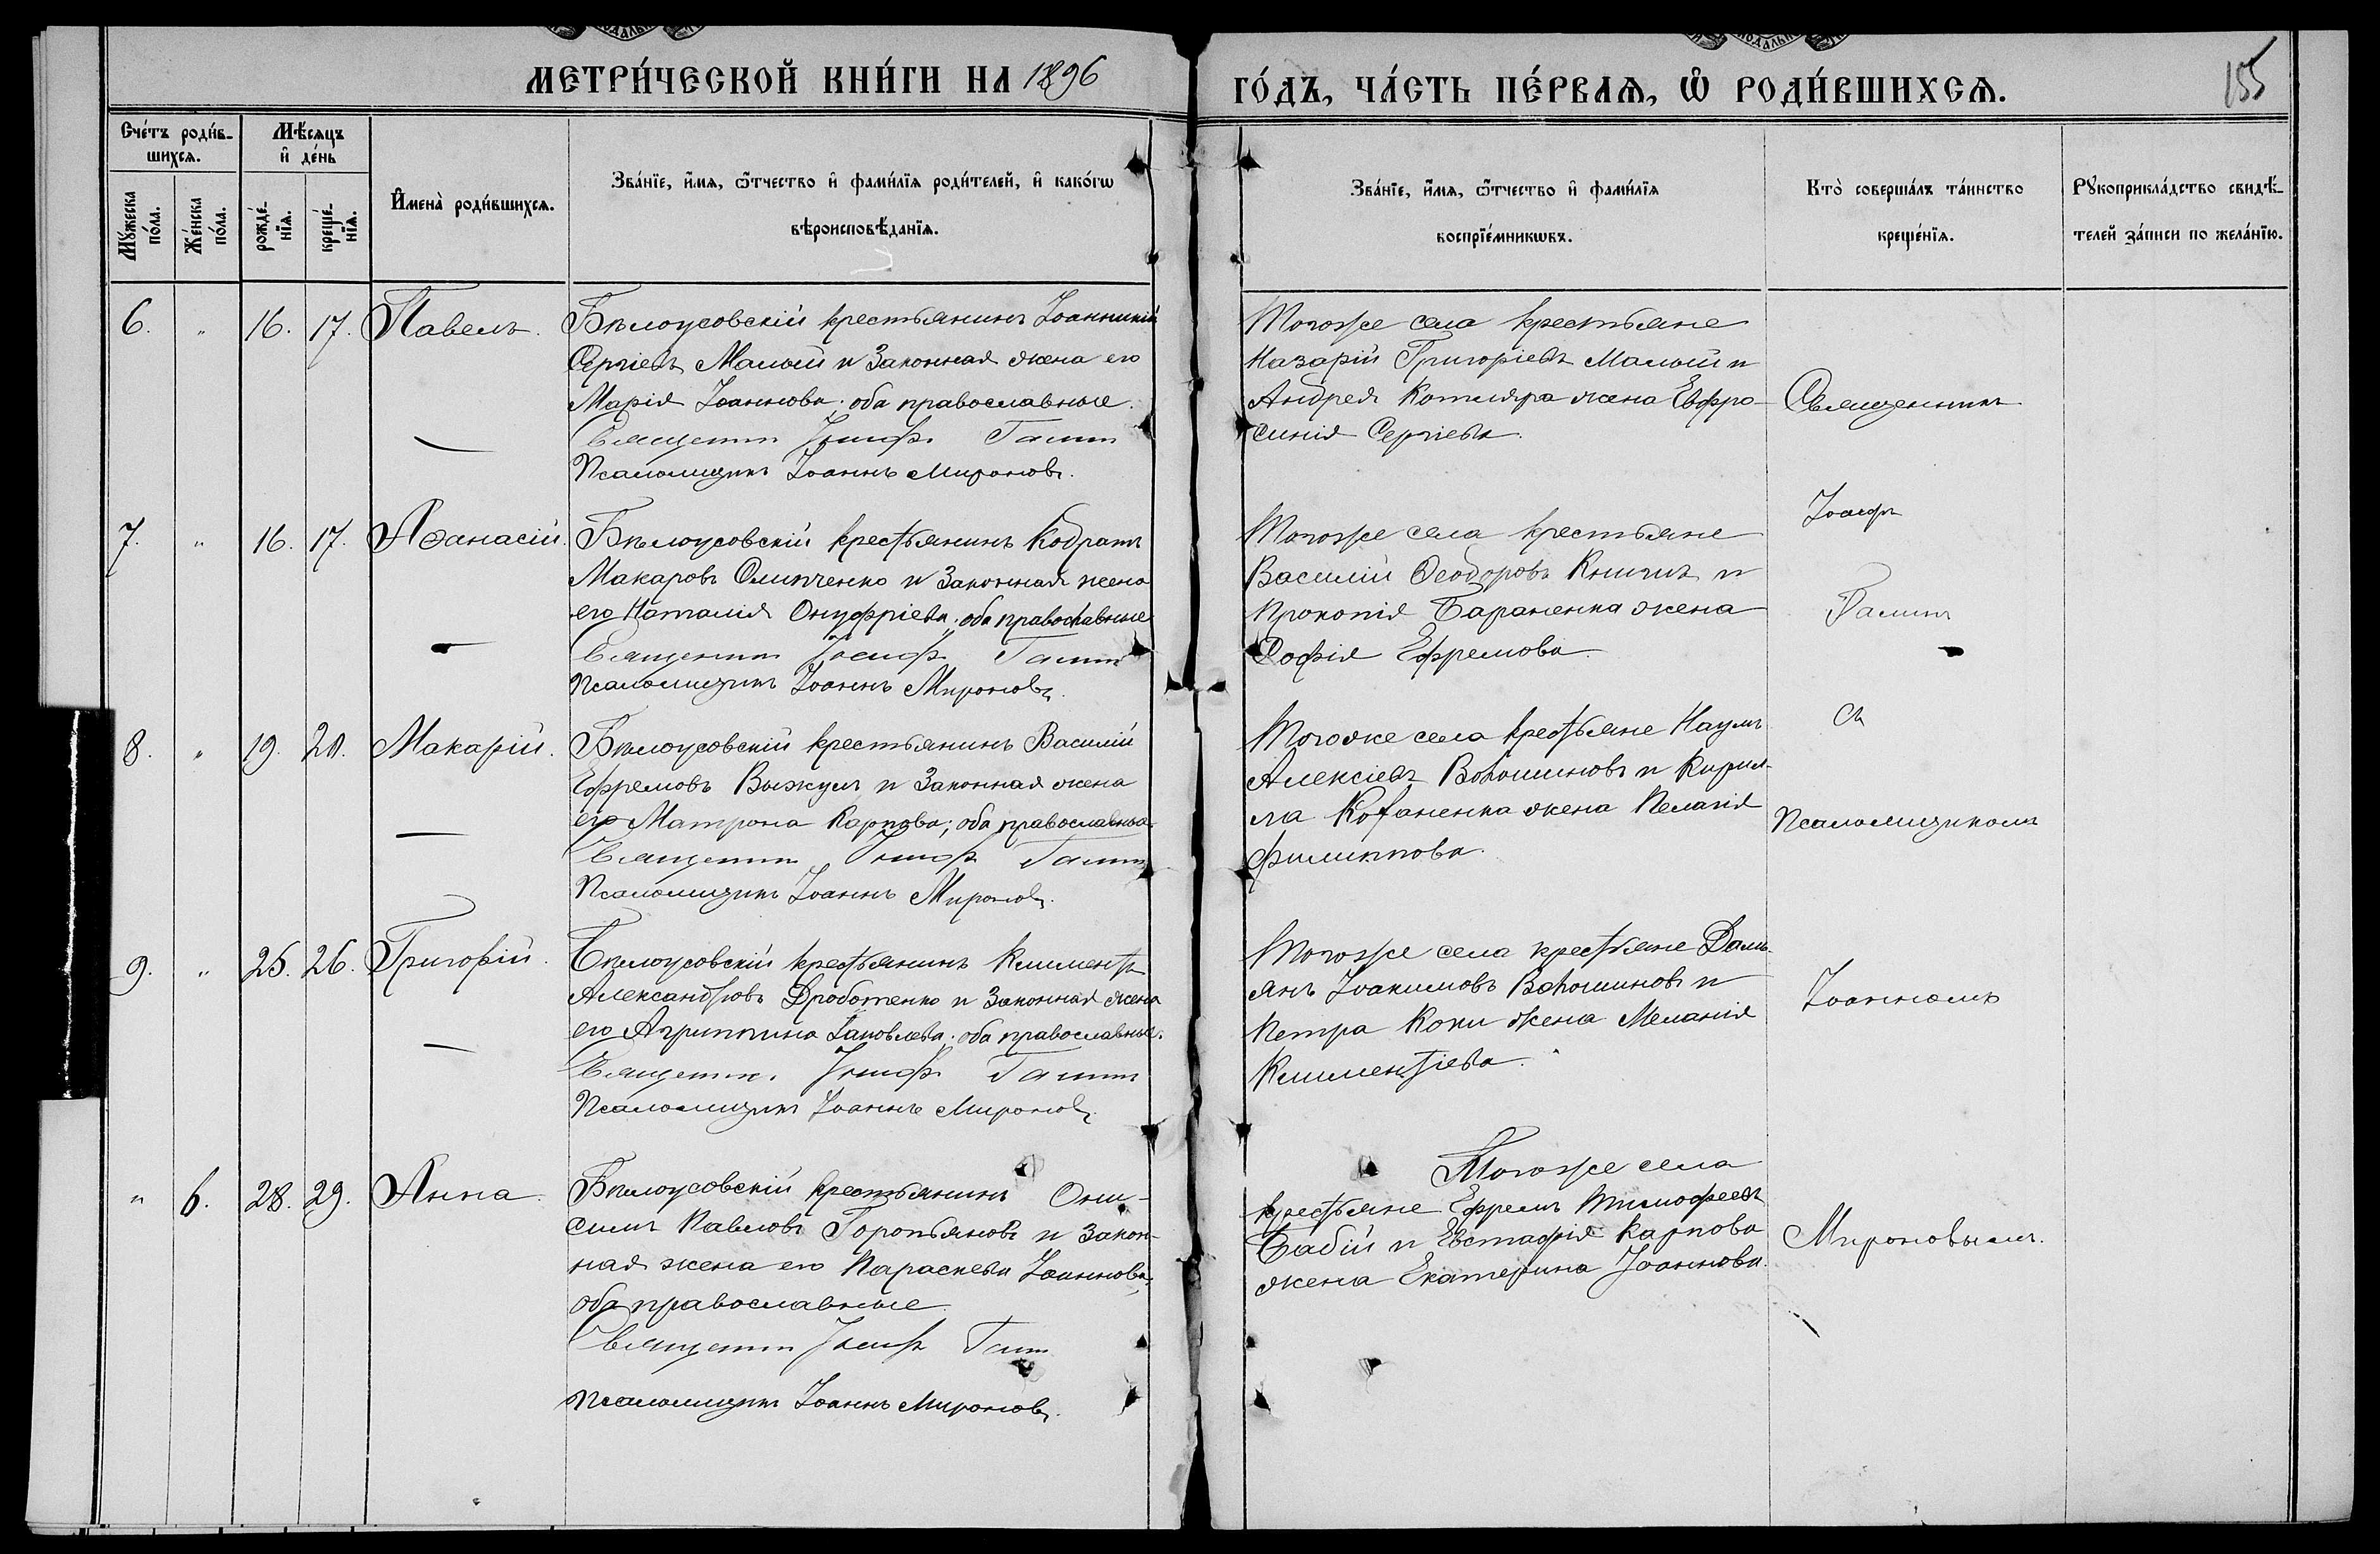 МЕТРИ́ЧЕСКОЙ КНИ́ГИ НА 1896
ГО́ДЪ, ЧА́СТЬ ПЕ́РВАѦ, Ѡ РОДИ́ВШИХСѦ.
155
Сче́тъ роди́в-
шихсѧ.
Мѣ́сѧцъ
и де́нь
Мꙋжеска
по́ла.
Же́нска
по́ла.
рожде́-
нїѧ.
креще́-
нїѧ.
Имена̀ роди́вшихсѧ.
Зва́нїе, и́мѧ, ѿтчество и фами́лїѧ роди́телей, и како́гѡ
вѣроисповѣ́данїѧ.
Зва́нїе, и́мѧ, ѿтчество и фами́лїѧ
воспрїе́мникѡвъ.
Кто̀ соверша́лъ та́инство
креще́нїѧ.
Рꙋкоприкла́дство свидѣ́-
телей за́писи по жела́нїю.
6. " 16. 17. Павелъ.
Бѣлоусовскій крестьянинъ Іоанникій
Сергіевъ Малый и законная жена его
Марія Іоаннова; оба православные.
Священникъ Іосифъ
Псаломщикъ Іоаннъ Мироновъ.
Тогоже села крестьяне
Назарій Григоріевъ Малый и
Андрея Котляра жена Евфро-
синія Сергіева.
Священникъ
7. " 16. 17. Аѳанасій.
Бѣлоусовскій крестьянинъ Кодратъ
Макаровъ Олипченко и законная жена
его Наталія Онуфріева; оба православные
Священникъ Іосифъ
Псаломщикъ Іоаннъ Мироновъ.
Тогоже села крестьяне
Василій Ѳеодоровъ и
Прокопія Бараненка жена
Софія Ефремова.
Іосифъ
8. " 19. 20. Макарій.
Бѣлоусовскій крестьянинъ Василій
Ефремовъ Выжулъ и законная жена
его Матрона Карпова; оба православные.
Священникъ Іосифъ
Псаломщикъ Іоаннъ Мироновъ.
Тогоже села крестьяне Наумъ
Алексіевъ Волошиновъ и Кирил-
ла жена Пелагія
Филиппова.
съ
Псаломщикомъ
9. " 25. 26. Григорій.
Бѣлоусовскій крестьянинъ Климентъ
Александровъ Дроботенко и законная жена
его Агриппина Іаковлева; оба православные.
Священникъ Іосифъ
Псаломщикъ Іоаннъ Мироновъ.
Тогоже села крестьяне Дамі-
анъ Іоакимовъ Волошиновъ и
Петра жена Меланія
Климентіева.
Іоанномъ
" 6. 28. 29. Анна.
Бѣлоусовскій крестьянинъ Они-
симъ Павловъ Горопьяновъ и закон-
ная жена его Параскева Іоаннова;
оба православные.
Священникъ Іосифъ
Псаломщикъ Іоаннъ Мироновъ.
Тогоже села
крестьяне Ефремъ Тимофеевъ
Бабій и Евстафія Карпова
жена Екатерина Іоаннова.
Мироновымъ.